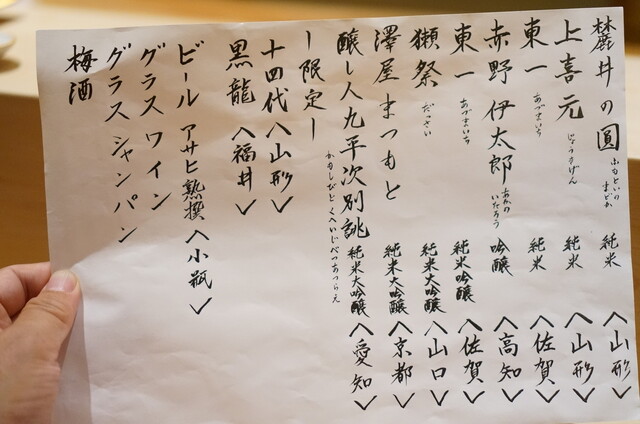 麓井の圓 ふもといの まどか 純米 〈山形〉
上喜元 じょうきげん 純米 〈山形〉
東一 あづまいち 純米 〈佐賀〉
赤野 伊太郎 あかの いたろう 吟醸 〈高知〉
東一 あづまいち 純米吟醸 〈佐賀〉
獺祭 だっさい 純米大吟醸 〈山口〉
澤屋まつもと 純米大吟醸 〈京都〉
醸し人九平次別誂 かもしびとくへいじべつあつらえ 純米大吟醸 〈愛知〉
ー限定ー
十四代〈山形〉
黒龍〈福井〉
ビール アサヒ熟撰〈小瓶〉
グラスワイン
グラスシャンパン
梅酒